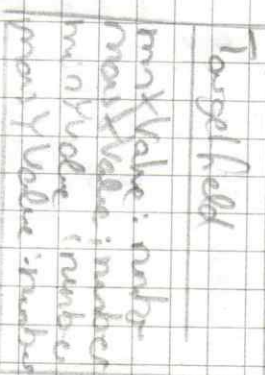 Targetfield
minXValue: number
maxXValue: number
minYValue: number
maxYValue: number